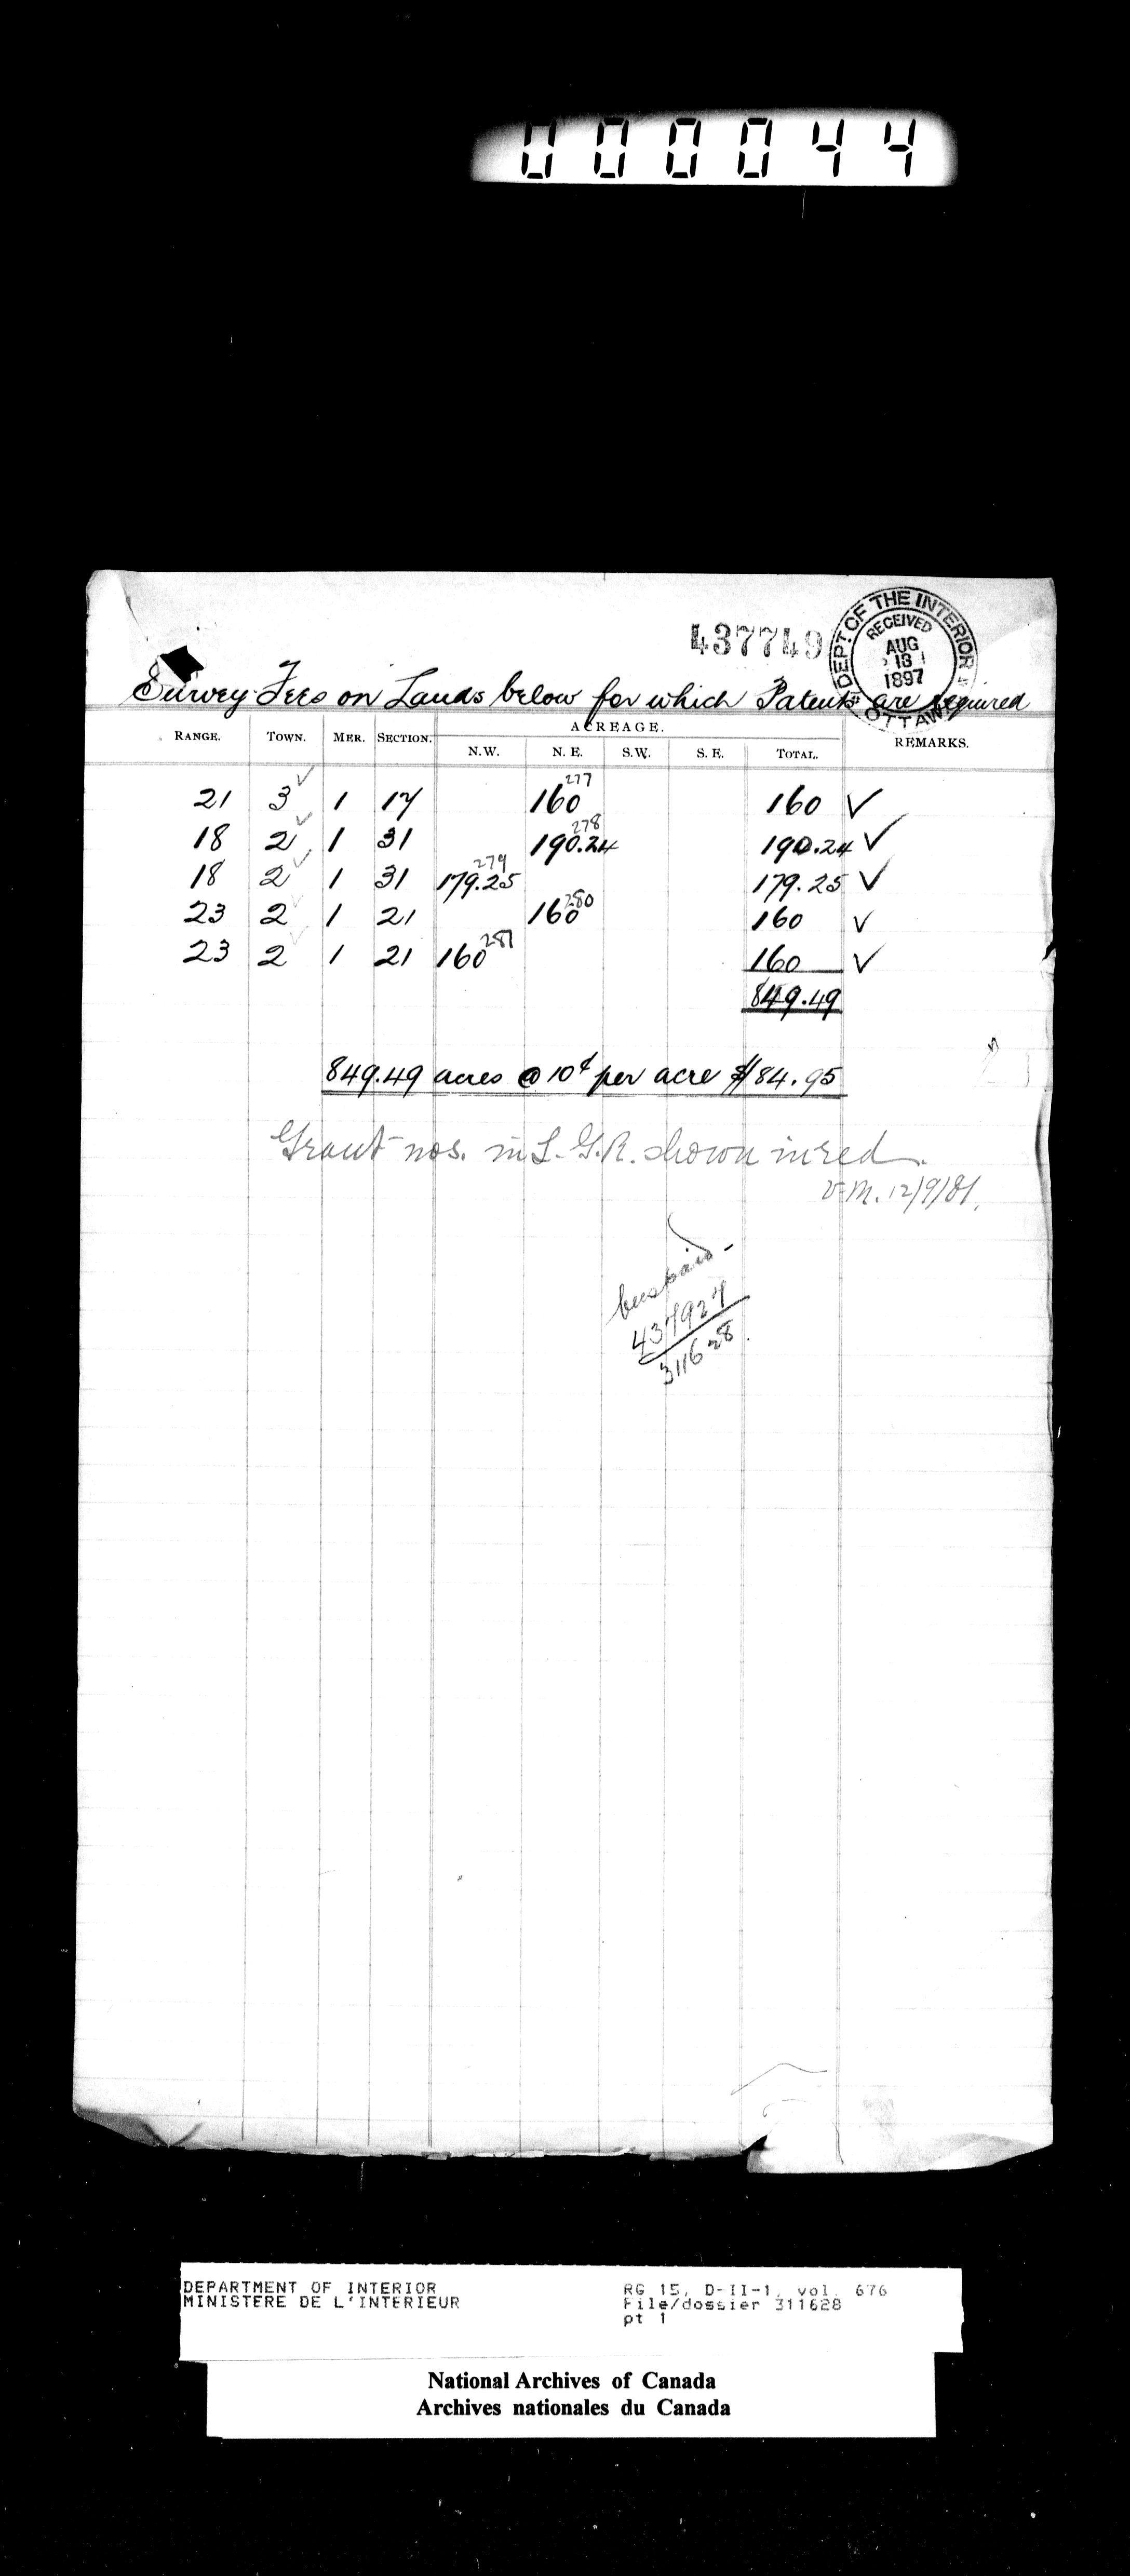 000044
437749
DEPT OF THE INTERIOR
RECEIVED
AUG
13
1897
OTTAWA
Survey Fees on Lands below for which Patents are required
ACREAGE.
RANGE. TOWN. MER. SECTION. N.W. N.E. S.W. S.E. TOTAL. REMARKS.
277
21 3 ✓ 1 17 160 160 ✓
278
18 2 ✓ 1 31 190.24 190.24 ✓
279
18 2 ✓ 1 31 179.25 179.25 ✓
280
23 2 ✓ 1 21 160 160 ✓
281
23 2 ✓ 1 21 160 160 ✓
849.49
849.49 acres @ 10¢ per acre $84.95
Grant nos. in L.G.R. shown in red.
V.M. 12/9/81.
437927
311628
DEPARTMENT OF INTERIOR
MINISTERE DE L'INTERIEUR
RG 15, D-II-1, vol. 676
File/dossier 311628
pt 1
National Archives of Canada
Archives nationales du Canada